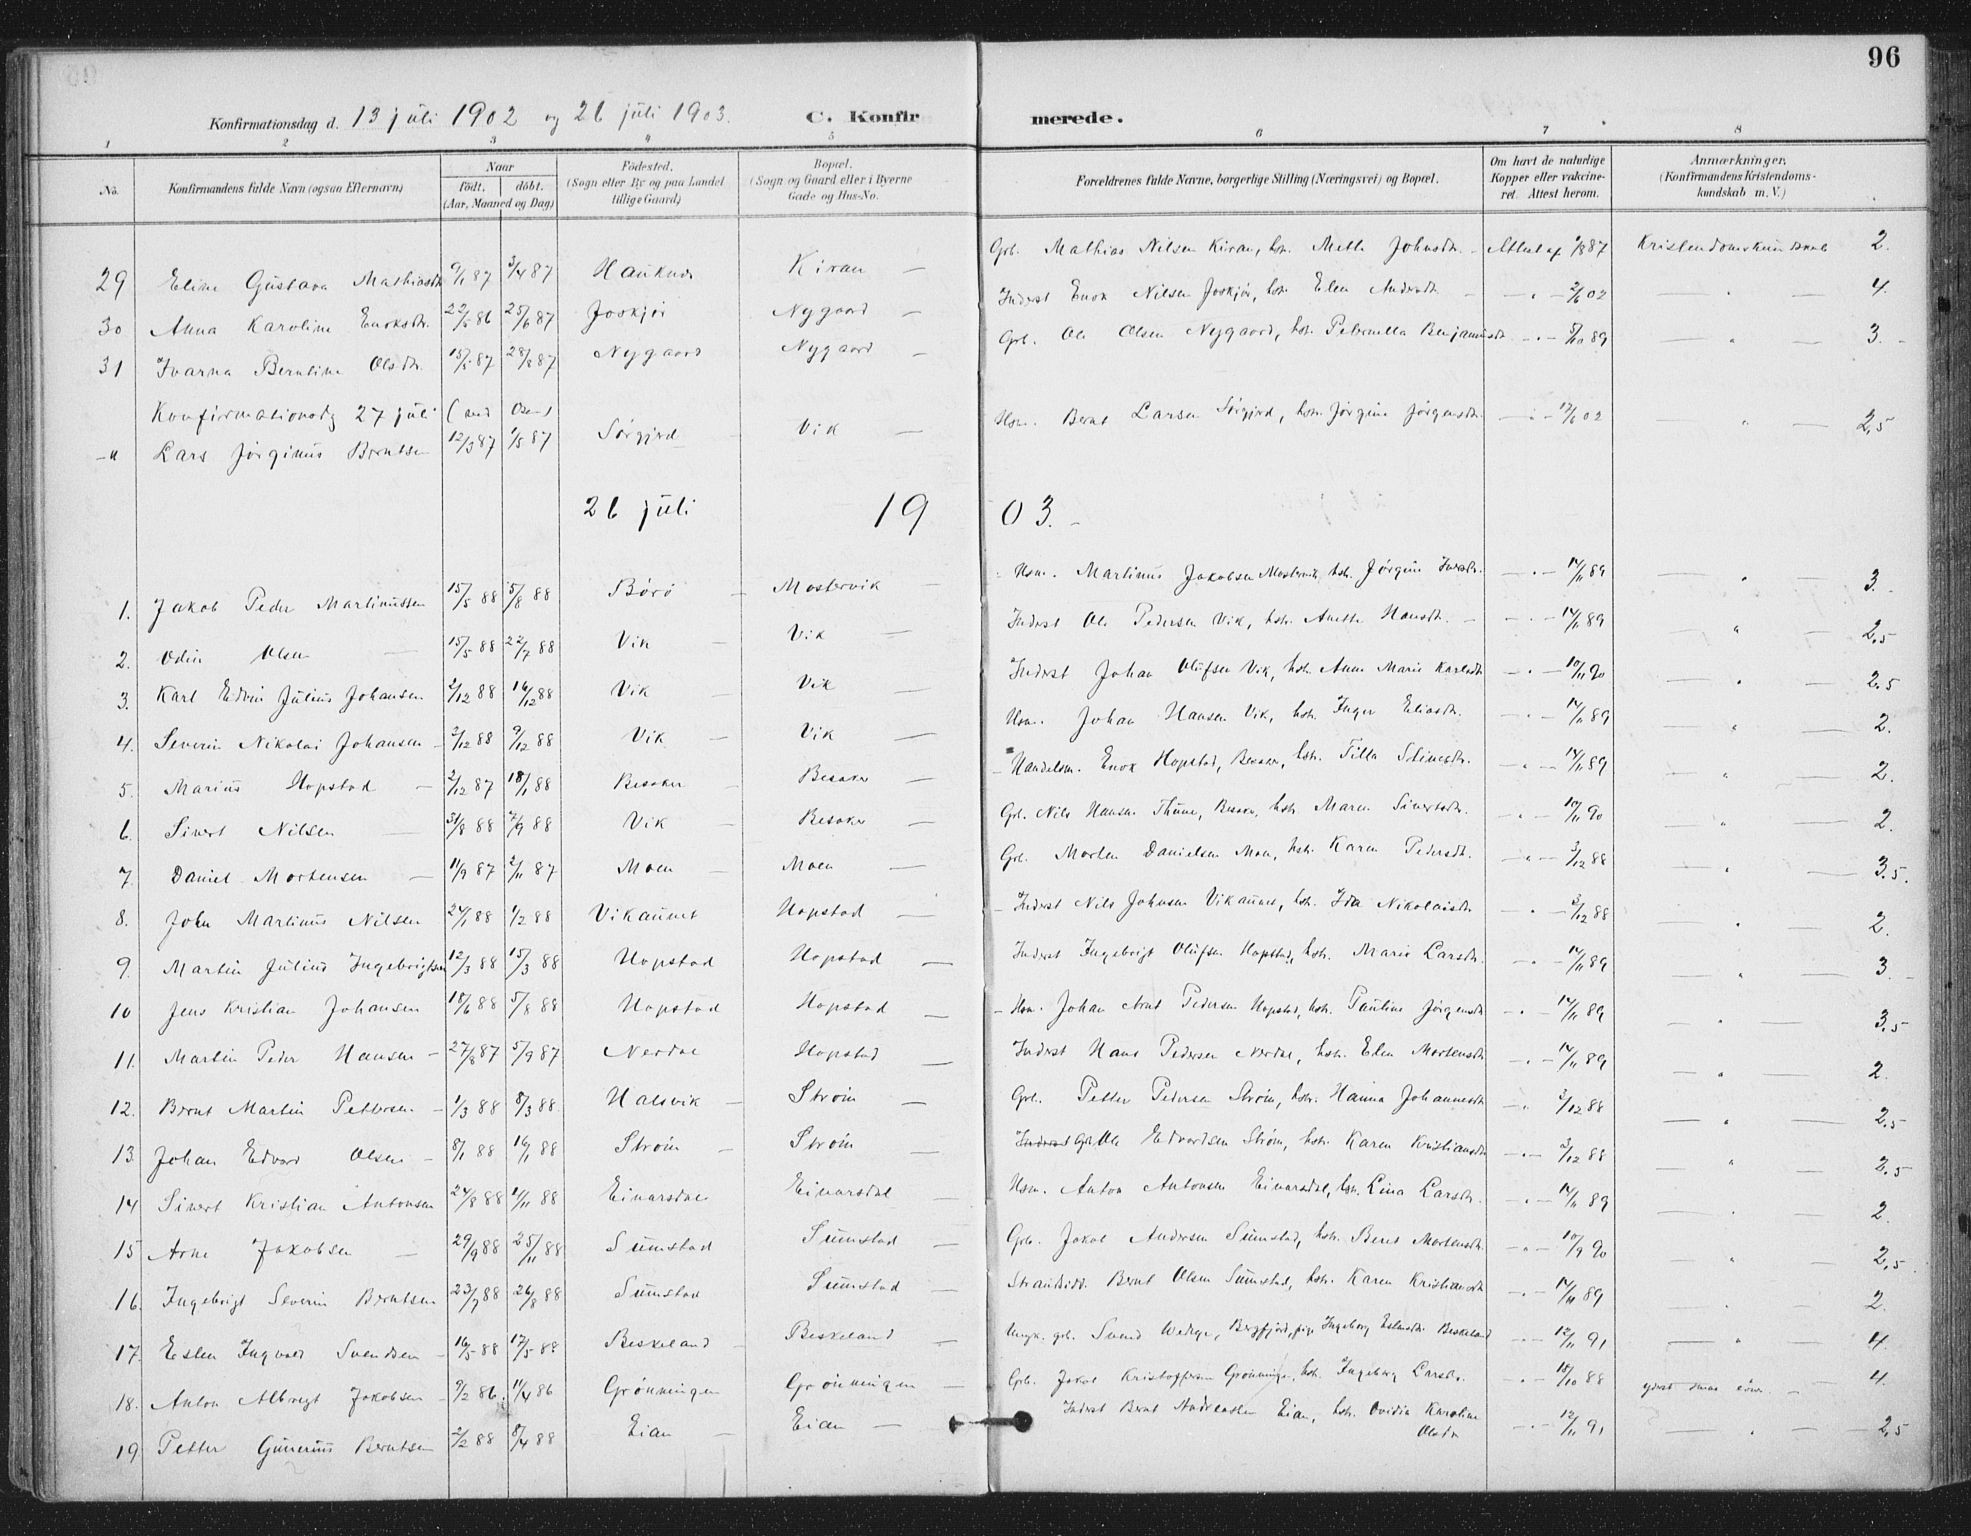 96
Konfirmationsdag d. 13 juli 1902 og 26 juli 1903. C. Konfirmerede.
1 2 3 4 5 6 7 8
No. Konfirmandens fulde Navn (ogsaa Efternavn) Naar født, døbt. (Aar, Maaned og Dag) Fødested, (Sogn eller By og paa Landet tillige Gaard) Bopæl. (Sogn og Gaard eller i Byerne Gade og Hus-No. Forældrenes fulde Navne, borgerlige Stilling (Næringsvei) og Bopæl. Om havt de naturlige Kopper eller vakcineret. Attest herom. Anmærkninger. (Konfirmandens Kristendomskundskab m. V.)
29 Eline Gustava Mathiasdtr 9/1 87 3/4 87 Hauknes Kiran — Grb. Mathias Nilsen Kiran, hst. Mette Johnsdtr. - Attest af 1/8 87 Kristendomskundskab 2.
30 Anna Karoline Enoksdtr. 22/5 86 25/6 87 Joskjør Nygaard — Inderst Enok Nilsen Joskjør, hst. Elen Andersdtr — - " - 2/6 02 — " — 4.
31 Ivarna Berntine Olsdtr. 15/5 87 28/8 87 Nygaard Nygaard — Grb. Ole Olsen Nygaard, hst. Peternella Benjaminsdtr - " - 5/10 89 — " — 3.
Konfirmationsdg 27 juli (ved Osen)
-" Lars Jørginus Berntsen 12/3 87 1/5 87 Sørgjerd Vik — Hsm. Bernt Larsen Sørgjerd, hstr. Jørgine Jørgensdtr. - " - 12/6 02 — " — 2,5
26 juli 1903. -
1. Jakob Peder Martinussen 15/5 88 5/8 88 Børø — Mostervik — Hsm. Martinus Jakobsen Mostervik, hst. Jørgine Iversdtr. - " - 14/11 89 — " — 3.
2. Odin Olsen — 15/5 88 22/7 88 Vik — Vik — Inderst Ole Pedersen Vik, hst. Anette Hansdtr. - - " - 14/11 89 — " — 2.5
3. Karl Edvin Julius Johansen 2/12 88 16/12 88 Vik — Vik Inderst Johan Olufsen Vik, hst. Anne Marie Karlsdtr - " - 10/11 90 — " — 2.5
4. Severin Nikolai Johansen - 2/12 88 9/12 88 Vik — Vik — Hsm. Johan Hansen Vik, hst. Inger Eliasdtr. - " - 14/11 89 — " — 2.
5. Marius Hopstad — 2/12 87 18/1 88 Besaker — Besaker — - Handelsm. Enok Hopstad, Besaker, hst. Tilla Stinesdtr. - " - 14/11 89 — " — 2.
6. Sivert Nilsen — 31/8 88 2/9 88 Vik — Besaker — Grb. Nils Hansen Thune, Besaker, hst. Maren Sivertsdtr. - " - 10/11 90 — " — 2.
7. Daniel Mortensen — 11/9 87 2/11 87 Moen — Moen — Grb. Morten Danielsen Moen, hst. Karen Pedersdtr. - " - 3/12 88 — " — 3.5.
8. John Martinus Nilsen 24/1 88 1/2 88 Vikaunet Hopstad — - Inderst Nils Johnsen Vikaunet, hst. Ida Nikolaisdtr - " - 3/12 88 — " — 2.
9. Martin Julius Ingebrigtsen 12/3 88 15/3 88 Hopstad Hopstad — Inderst Ingebrigt Olufsen Hopstad, hst. Marie Larsdtr. - " - 14/11 89 — " — 3. -
10 Jens Kristian Johansen 18/6 88 5/8 88 Hopstad Hopstad — - Hsm. Johan Arnt Pedersen Hopstad, hst. Pauline Jørgensdtr - " - 14/11 89 — " — 3.5
11. Martin Peder Hansen - 27/8 87 5/9 87 Nerdal Hopstad — Inderst Hans Pedersen Nerdal, hst. Elen Mortensdtr - " - 14/11 89 — " — 2.
12. Bernt Martin Pettersen - 1/3 88 8/3 88. Halsvik — Strøm — Grb. Petter Pedersen Strøm, hst. Hanna Johannesdtr - " 3/12 88 — " — 2.5
13. Johan Edvard Olsen - 8/1 88 16/1 88 Strøm — Strøm — Inderst Grb. Ole Edvardsen Strøm, hst. Karen Kristiansdtr - " - 3/12 88 — " — 2,5
14 Sivert Kristian Antonsen 24/8 88 11/11 88 Einarsdal Einarsdal — Hsm. Anton Antonsen Einarsdal, hst. Lina Larsdtr. - " - 14/11 89 — " — 2.
15 Arne Jakobsen — 29/9 88 25/11 88 Sumstad Sumstad — Grb. Jakob Andersen Sumstad, hst. Beret Mortensdtr. - " - 10/9 90 — " — 2,5
16. Ingebrigt Severin Berntsen 23/7 88 26/8 88 Sumstad Sumstad — Strandsidd. Bernt Olsen Sumstad, hst. Karen Kristiansdtr - " - 14/11 89 — " — 2.
17. Eslen Ingvald Svendsen - 16/5 88 17/5 88 Beskeland — Beskeland — Ungk. grb. Svend Wedge, Bergfjord, pige Ingeborg Eslensdtr Beskeland - " - 12/11 91 — " — 4.
18. Anton Albregt Jakobsen - 9/2 86. 11/4 86 Grønningen Grønningen — Grb. Jakob Kristoffersen Grønningen, hst. Ingeborg Larsdtr. - " - 15/10 88 yderst smaa evner. — 4.
19 Petter Gunerius Berntsen 2/2 88 8/4 88 Eian — Eian — Inderst Bernt Andreassen Eian, hst. Ovidia Karoline Olsdtr - " - 12/11 91 — " — 2,5